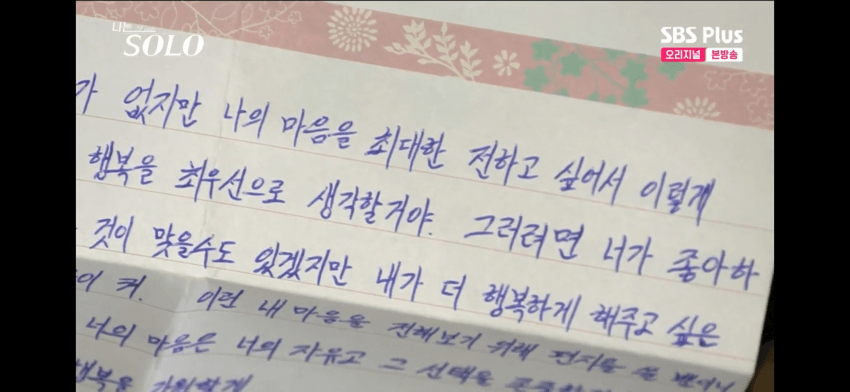 나는
SOLO
SBS Plus
오리지널 본방송
가 없지만 나의 마음을 최대한 전하고 싶어서 이렇게
행복을 최우선으로 생각할거야. 그러려면 너가 좋아하
것이 맞을수도 있겠지만 내가 더 행복하게 해주고 싶은
커. 이런 내 마음을 전해보기 위해 편지를 쓸 뿐이니
너의 마음은 너의 자유고 그 선택을
행복을